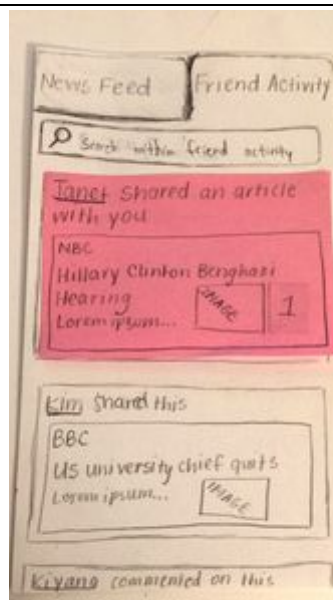 News Feed
Friend Activity
Search within friend activity
Janet shared an article
with you
NBC
Hillary Clinton Benghazi
Hearing
IMAGE
1
Lorem ipsum...
Kim shared this
BBC
US university chief quits
Lorem ipsum...
IMAGE
Kiyang commented on this